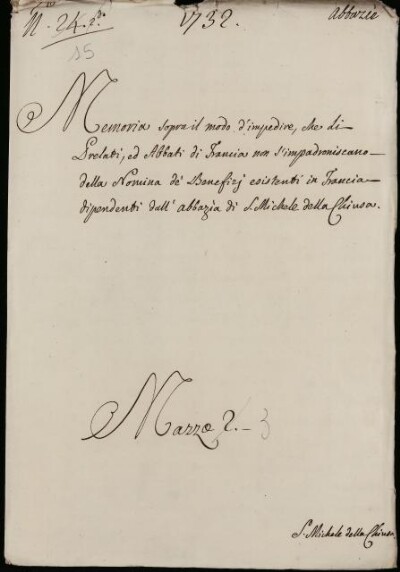 N. 24. 2.do 1732. Abbazie
15
Memoria sopra il modo d'impedire, che li
Prelati, ed Abbati di Francia non s'impadroniscano
della Nomina de' Benefizj esistenti in Francia
dipendenti dall' abbazia di S. Michele della Chiusa.
Mazzo 2. 3
S. Michele della Chiusa